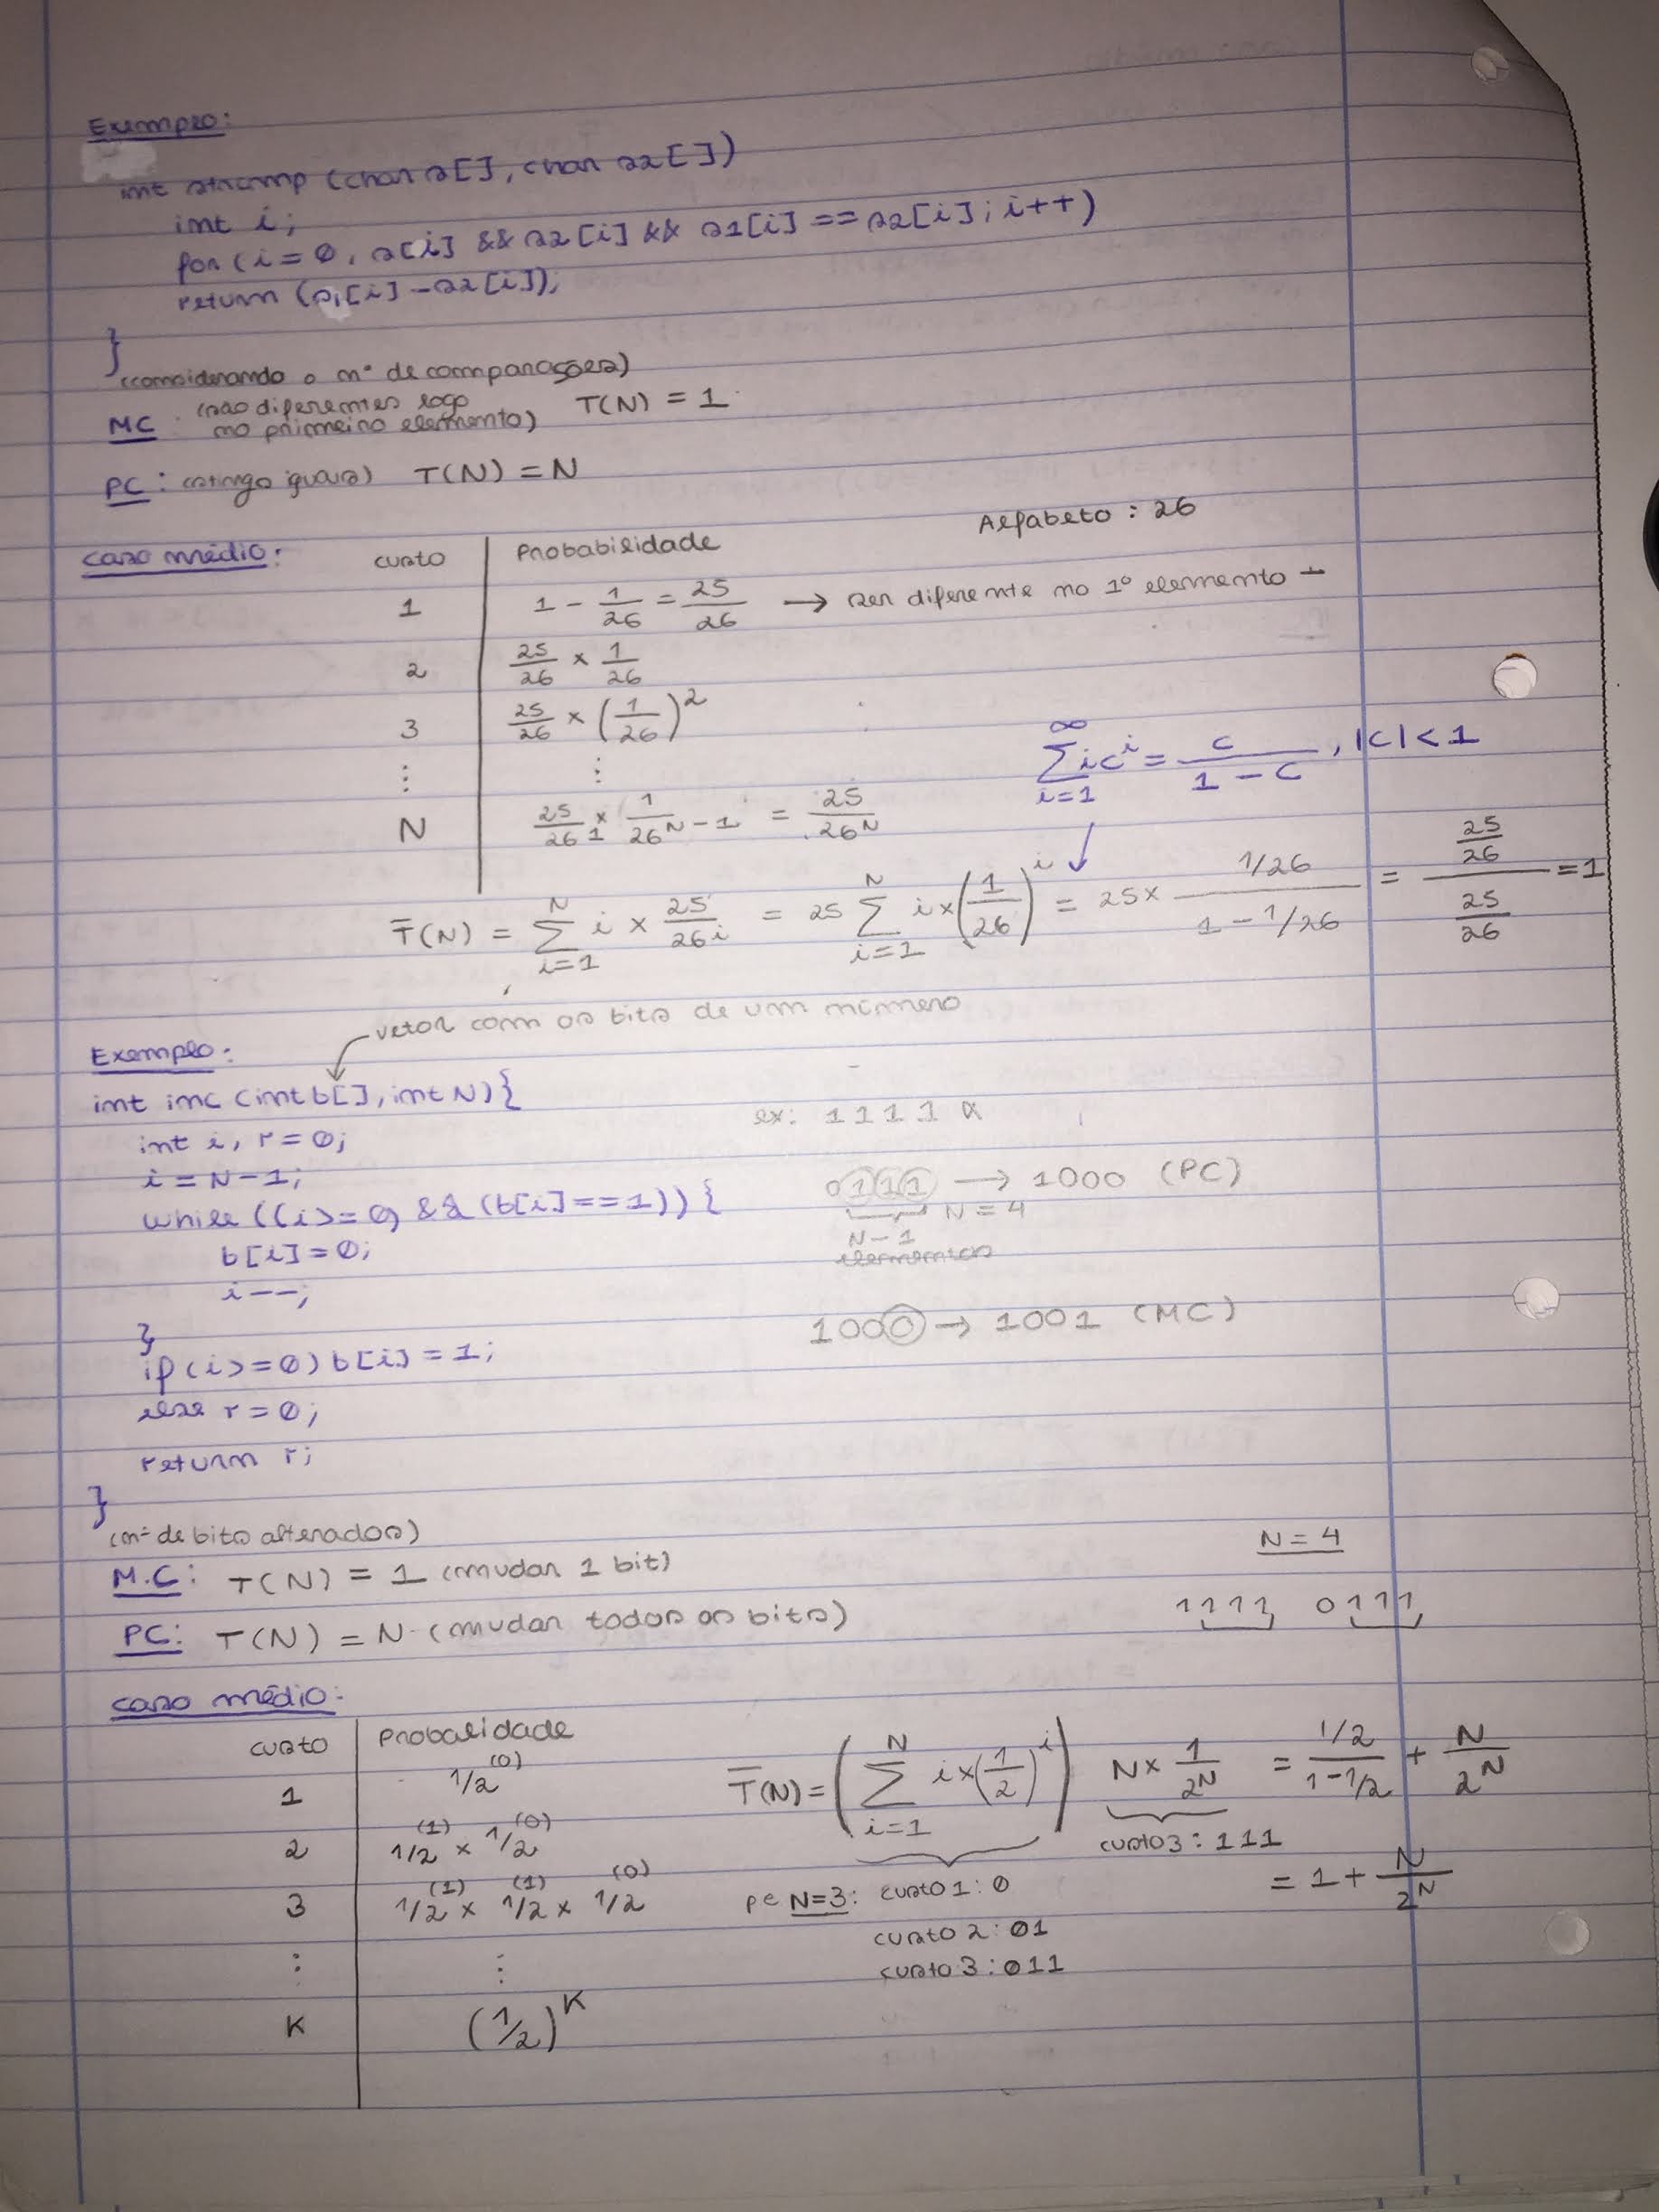 Exemplo:
int strcmp (char s[], char s2[])
int i;
for (i = 0, s[i] && s2[i] && s1[i] == s2[i]; i++)
return (s1[i] - s2[i]);
}
(considerando o nº de comparações)
MC: (são diferentes logo no primeiro elemento) T(N) = 1
PC: (strings iguais) T(N) = N
Alfabeto : 26
caso médio: custo | Probabilidade
1 | 1 - 1/26 = 25/26 → ser diferente no 1º elemento
2 | 25/26 × 1/26
3 | 25/26 × (1/26)^2
⋮ ⋮
∑_{i=1}^{∞} i c^i = c/(1 - c), |c| < 1
N | 25/26^1 × 1/26^{N-1} = 25/26^N
T̄(N) = ∑_{i=1}^{N} i × 25/26^i = 25 ∑_{i=1}^{N} i × (1/26)^i = 25 × (1/26)/(1 - 1/26) = (25/26)/(25/26) = 1
vetor com os bits de um número
Exemplo:
int inc (int b[], int N) {
int i, r = 0;
i = N - 1;
while ((i >= 0) && (b[i] == 1)) {
b[i] = 0;
i--;
}
if (i >= 0) b[i] = 1;
else r = 0;
return r;
}
ex: 1 1 1 1 α
0111 → 1000 (PC)
N = 4
N - 1
elementos
1000 → 1001 (MC)
(nº de bits alterados)
M.C: T(N) = 1 (mudar 1 bit)
PC: T(N) = N (mudar todos os bits)
N = 4
1111 0111
caso médio:
custo | Probalidade
1 | 1/2 (0)
2 | 1/2 (1) × 1/2 (0)
3 | 1/2 (1) × 1/2 (1) × 1/2 (0)
⋮ ⋮
K | (1/2)^K
T̄(N) = (∑_{i=1}^{N} i × (1/2)^i) N × 1/2^N = (1/2)/(1 - 1/2) + N/2^N
custo 3 : 111
= 1 + N/2^N
pe N=3: custo 1 : 0
custo 2 : 01
custo 3 : 011